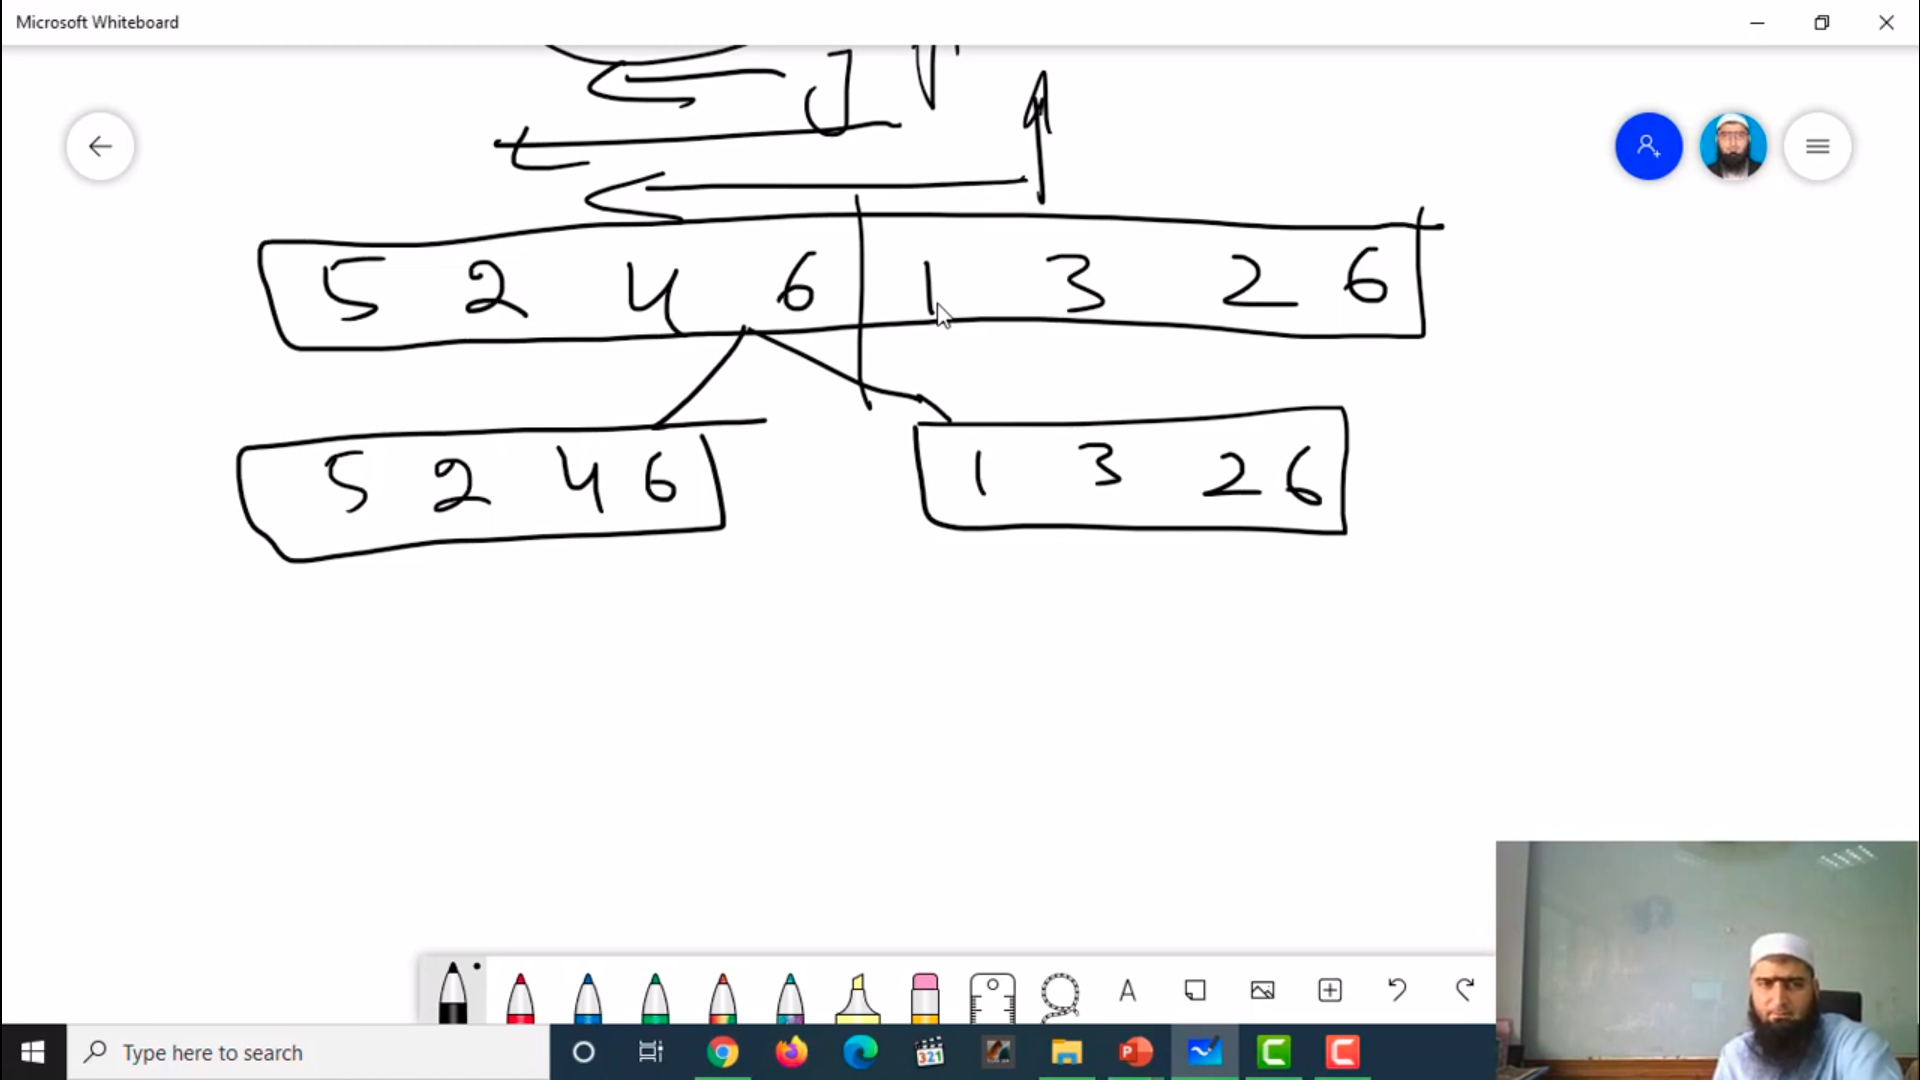 Microsoft Whiteboard
5 2 4 6 1 3 2 6
5 2 4 6
1 3 2 6
A
Type here to search
321